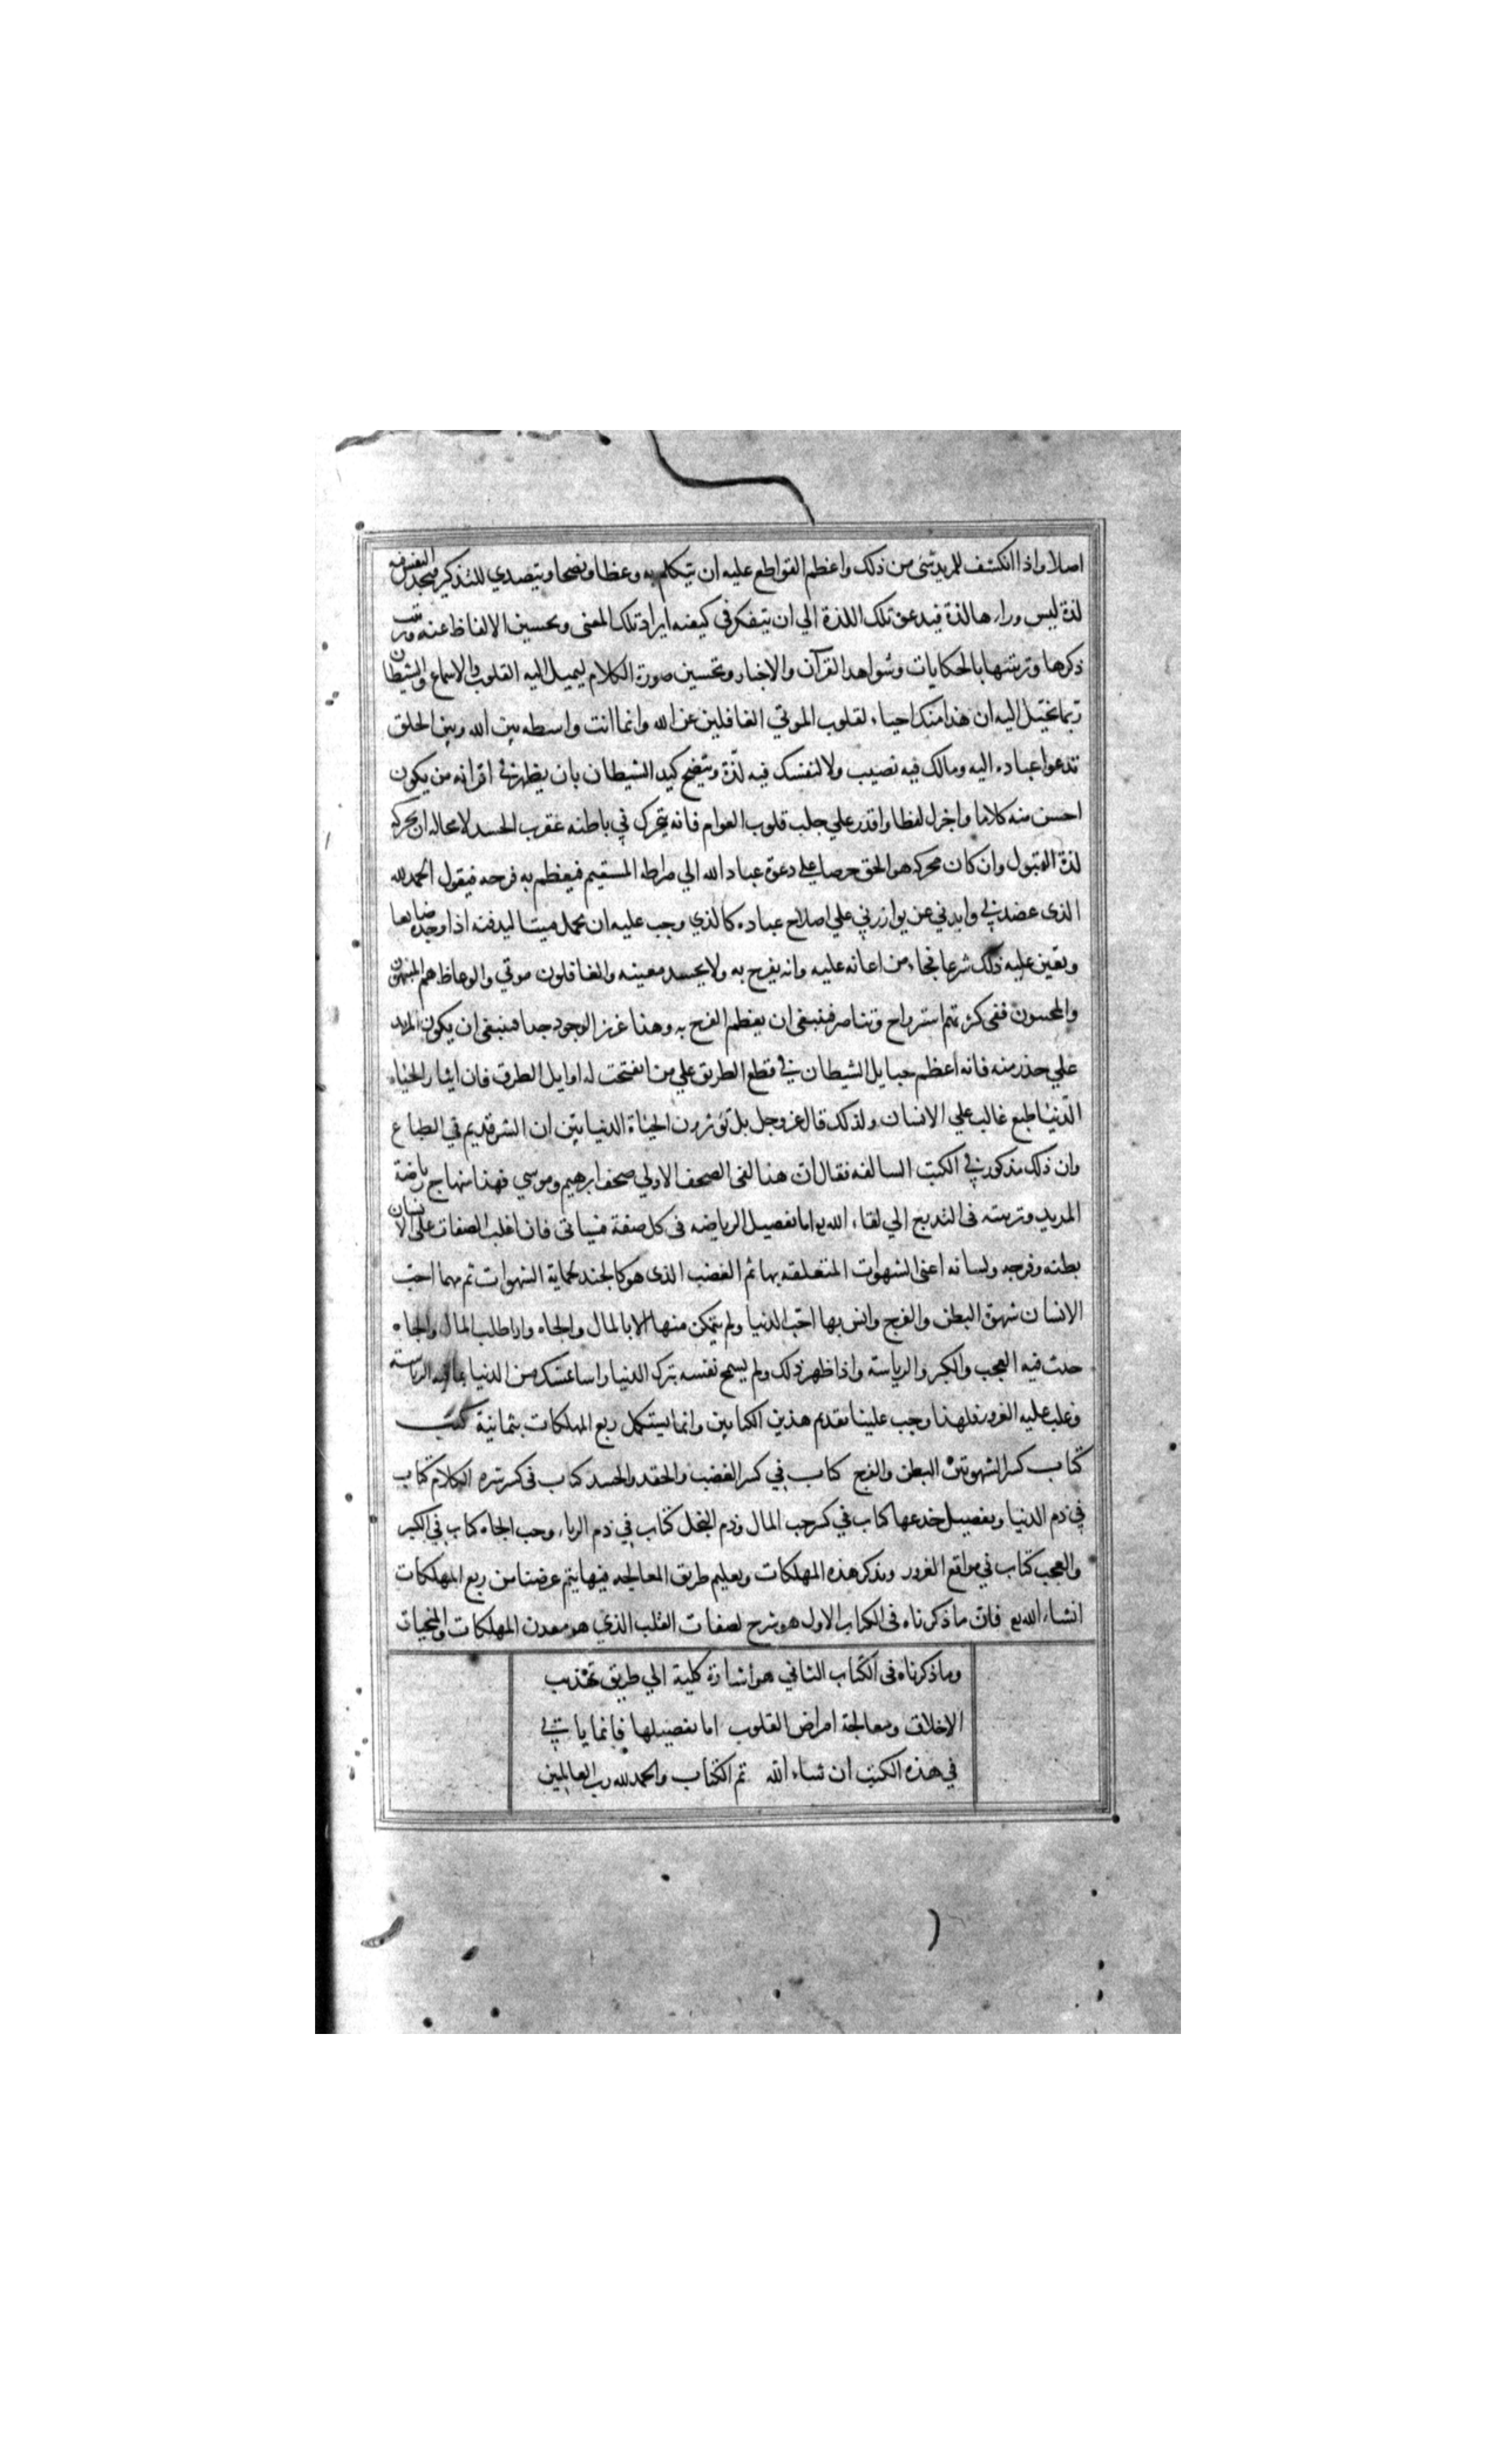 اصلا واذا انكشف للمريد شئ من ذلك واعظم القواطع عليه ان يتكلم به وعظا ونصحا ويتصدي للتذكير فيجد النفس فيه
لذة ليس وراءها لذة فيدعو تلك اللذة الي ان يتفكر في كيفية ايراد تلك المعنى وتحسين الالفاظ عنه وترتيب
ذكرها وتزيينها بالحكايات وشواهد القرآن والاخبار وتحسين صورة الكلام ليميل اليه القلوب والاسماع والشيطان
ربما يخيل اليه ان هذا منك احياء لقلوب الموتي الغافلين عن الله وانما انت واسطه بين الله وبين الخلق
تدعوا عباده اليه ومالك فيه نصيب ولا لنفسك فيه لذة ويتضح كيد الشيطان بان يظهر في اقرانه من يكون
احسن منه كلاما واجزل لفظا واقدر علي جلب قلوب العوام فانه يتحرك في باطنه عقرب الحسد لا محاله ان محركه
لذة القبول وان كان محركه هو الحق حرصا علي دعوة عباد الله الي صراطه المستقيم فيعظم به فرحه فيقول الحمد لله
الذى عضدني وايدني عن يوازرني علي اصلاح عباده كالذي وجب عليه ان يحمل ميتا ليدفنه اذا وجده ضايعا
وتعين عليه ذلك شرعا فجاء من اعانه عليه وانه يفرح به ولا يحسد معينه والغافلون موتي والوعاظ هم المنبهون
والمحسون ففى كثرتهم استرواح وتناصر فينبغى ان يعظم الفرح به وهذا عزيز الوجود جدا فينبغى ان يكون المريد
علي حذر منه فانه اعظم حبايل الشيطان في قطع الطريق علي من انفتحت له اوايل الطرق فان ايثار الحياه
الدنيا طبع غالب علي الانسان ولذلك قال عز وجل بل تؤثرون الحياة الدنيا بين ان الشر قديم في الطباع
وان ذلك مذكور في الكتب السالفه فقال ان هذا لفى الصحف الاولي صحف ابرهيم وموسي فهذا منهاج رياضة
المريد وتربيته فى التدريج الي لقاء الله واما تفصيل الرياضه فى كل صفة فسياتى فان اغلب الصفات على الانسان
بطنه وفرجه ولسانه اعنى الشهوات المتعلقه بها ثم الغضب الذى هو كالجند لحماية الشهوات ثم مهما احب
الانسان شهوة البطن والفرج وانس بها احب الدنيا ولم يتمكن منها الا بالمال والجاه واذا طلب المال والجاه
حدث فيه العجب والكبر والرياسة واذا ظهر ذلك ولم يسمح نفسه بترك الدنيا من الدنيا الرياسة
وغلب عليه الغرور فلهذا وجب علينا تقديم هذين الكتابين وانما يستكمل ربع المهلكات بثمانية كتب
كتاب كسر الشهوتين البطن والفرج كتاب في كسر الغضب والحقد والحسد كتاب فى كسر شره الكلام كتاب
في ذم الدنيا وتفصيل خدعها كتاب في كسر حب المال وذم البخل كتاب في ذم الرياء وحب الجاه كتاب في الكبر
والعجب كتاب في مواقع الغرور وبذكر هذه المهلكات وتعليم طريق المعالجه فيها يتم غرضنا من ربع المهلكات
انشاء الله فان ما ذكرناه فى الكتاب الاول هو شرح لصفات القلب الذي هو معدن المهلكات والمنجيات
وما ذكرناه فى الكتاب الثاني هو اشارة كلية الي طريق تهذيب
الاخلاق ومعالجة امراض القلوب اما تفصيلها فانما ياتي
في هذه الكتب ان شاء الله تم الكتاب والحمد لله رب العالمين